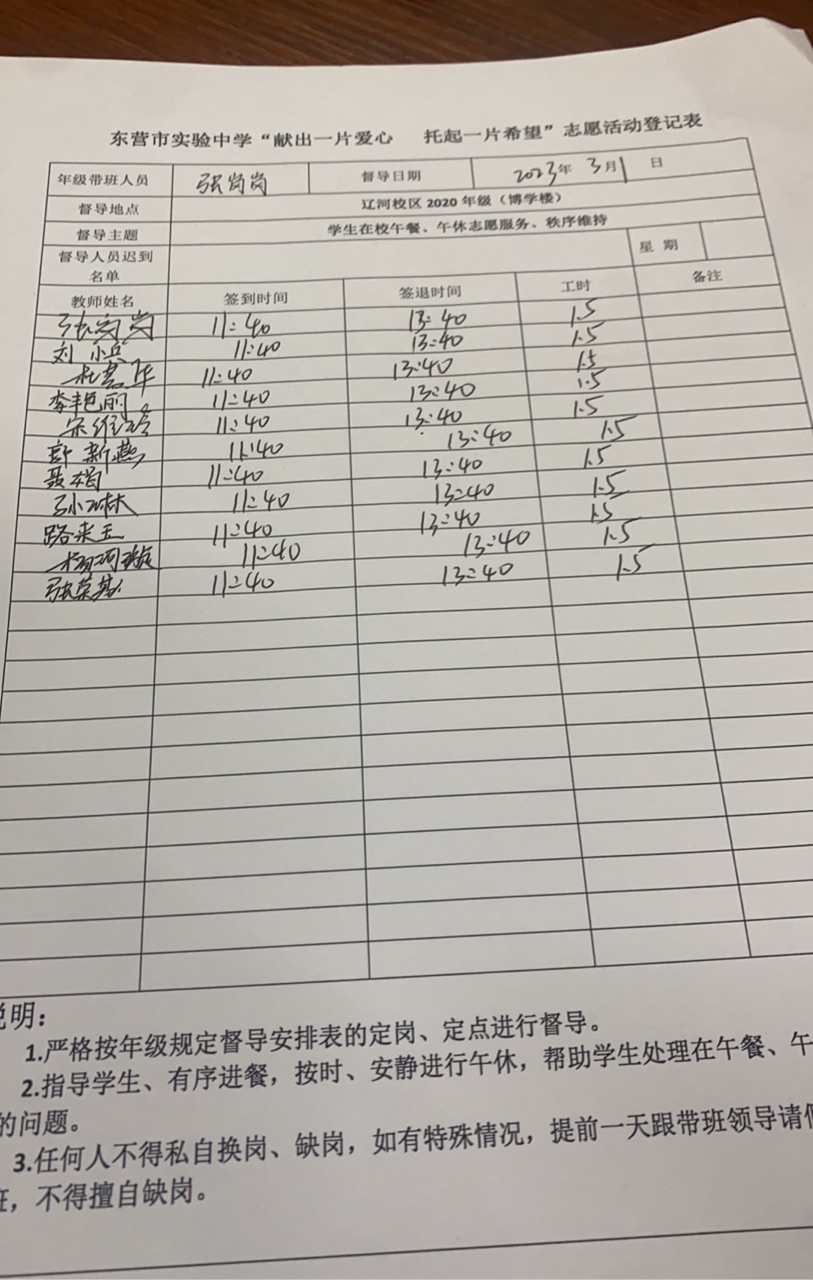 东营市实验中学“献出一片爱心 托起一片希望”志愿活动登记表
年级带班人员 张岗岗 督导日期 2023年 3月1日
督导地点 辽河校区 2020 年级（博学楼）
督导主题 学生在校午餐、午休志愿服务、秩序维持
督导人员迟到名单 星 期
教师姓名 签到时间 签退时间 工时 备注
张岗岗 11:40 13:40 1.5
刘小兵 11:40 13:40 1.5
11:40 13:40 1.5
李艳丽 11:40 13:40 1.5
宋维玲 11:40 13:40 1.5
新燕 11:40 13:40 1.5
聂娟 11:40 13:40 1.5
孙琳 11:40 13:40 1.5
路来玉 11:40 13:40 1.5
11:40 13:40 1.5
张 11:40 13:40 1.5
说明：
1.严格按年级规定督导安排表的定岗、定点进行督导。
2.指导学生、有序进餐，按时、安静进行午休，帮助学生处理在午餐、午
的问题。
3.任何人不得私自换岗、缺岗，如有特殊情况，提前一天跟带班领导请假
班，不得擅自缺岗。